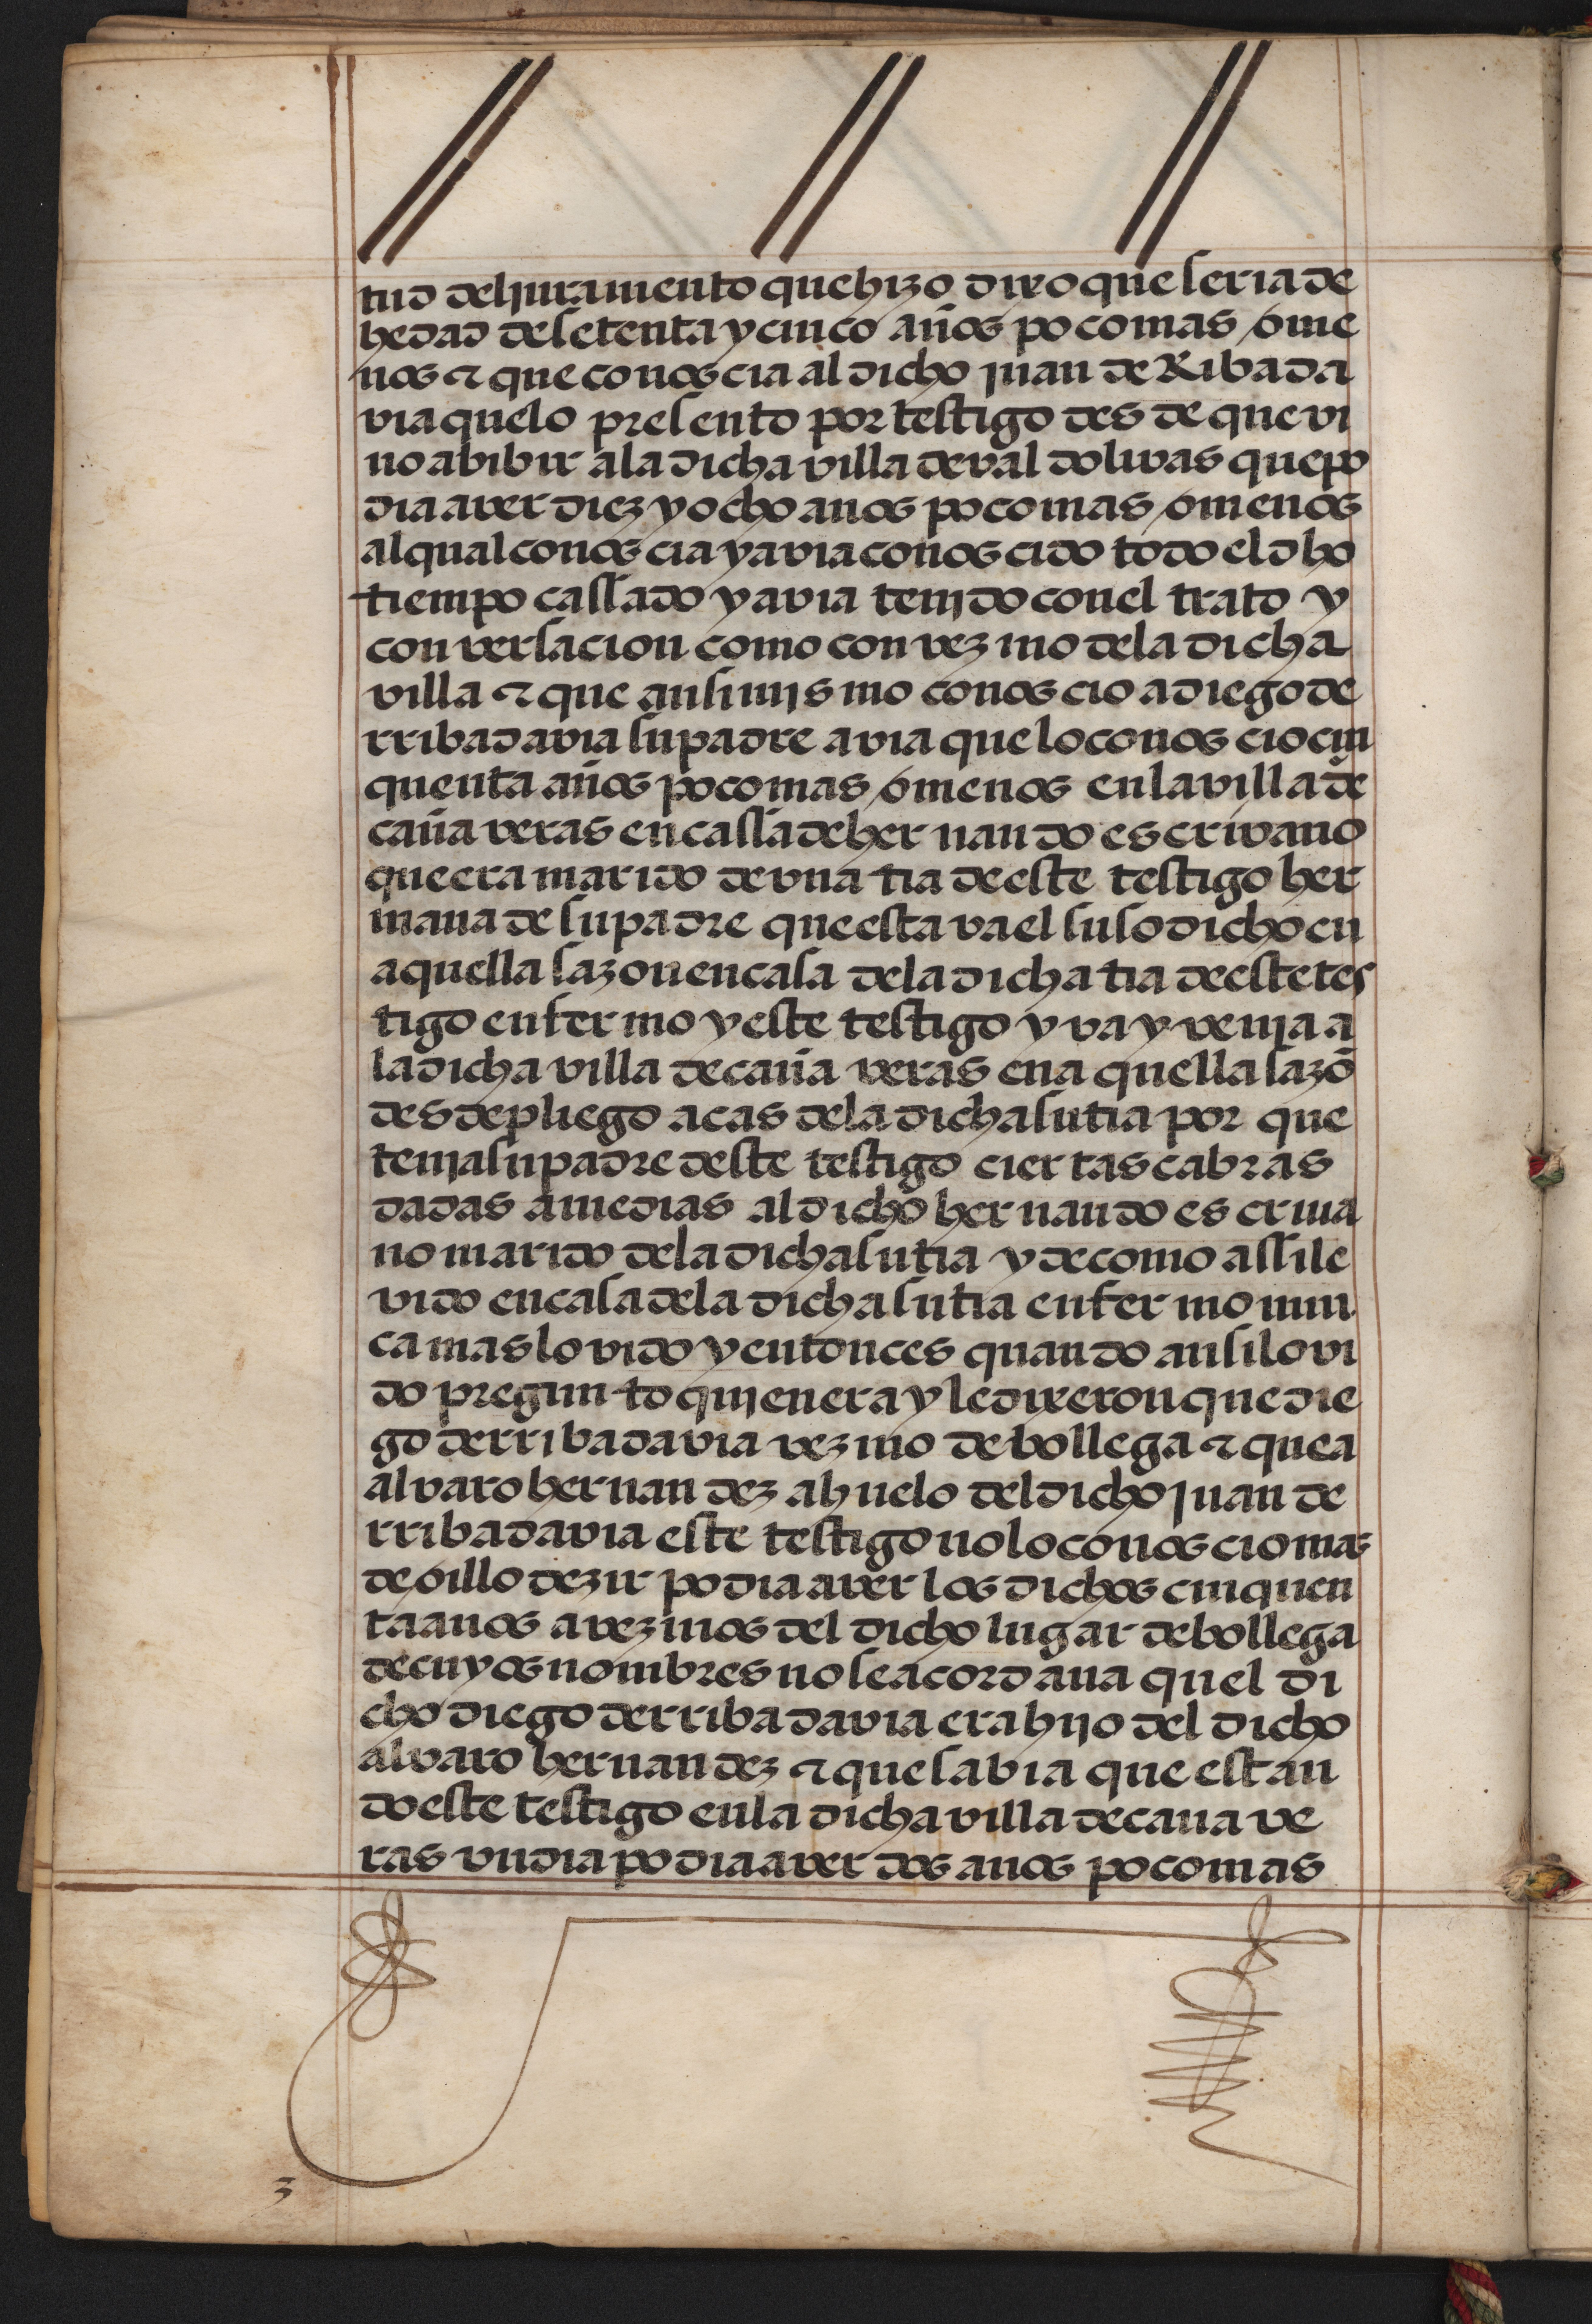 tud del juramento que hizo dixo que seria de
hedad de setenta y cinco años poco mas o me
nos ⁊ que conoscia al dicho juan de Ribada
via que lo presento por testigo desde que vi
no a bibir a la dicha villa de val dolivas que po
dia aver diez y ocho anos poco mas o menos
al qual conoscia y avia conoscido todo el dho
tiempo cassado y avia tenido con el trato y
conversacion como con vezino de la dicha
villa ⁊ que ansi mismo conoscio a diego de
rribadavia su padre avia que lo conoscio cin
quenta años poco mas o menos en la villa de
cañaveras en cassa de hernando escrivano
que era marido de vna tia de este testigo her
mana de su padre que estava el susodicho en
aquella sazon en casa de la dicha tia de este tes
tigo enfermo y este testigo yva y venia a
la dicha villa de cañaveras en aquella sazō
desde pliego a cas de la dicha su tia por que
tenia su padre deste testigo ciertas cabras
dadas a medias al dicho hernando escriua
no marido de la dicha su tia y de como assi le
vido en casa de la dicha su tia enfermo nun
ca mas lo vido y entonces quando ansi lo vi
do pregunto quien era y le dixeron que die
go de rribadavia vezino de bollega ⁊ que a
alvaro hernandez ahuelo del dicho juan de
rribadavia este testigo no lo conoscio mas
de oillo dezir podia aver los dichos cinquen
ta anos a vezinos del dicho lugar de bollega
de cuyos nombres no se acordaua quel di
cho diego de rribadavia era hijo del dicho
alvaro hernandez ⁊ que sabia que estan
do este testigo en la dicha villa de canave
ras vn dia podia aver dos anos poco mas
3